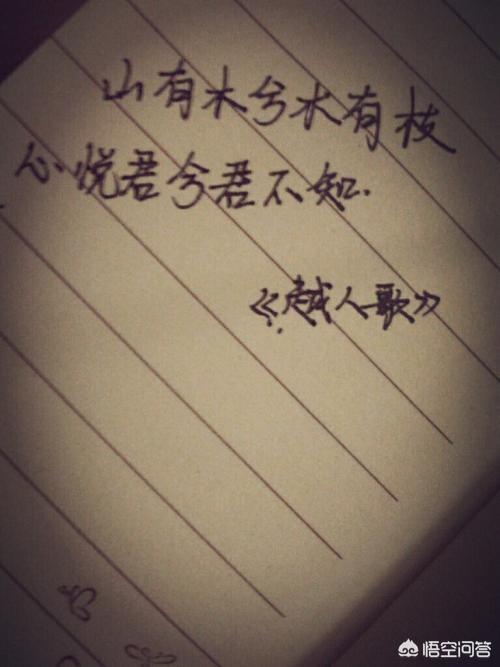 山有木兮木有枝
心悦君兮君不知.
《越人歌》
悟空问答